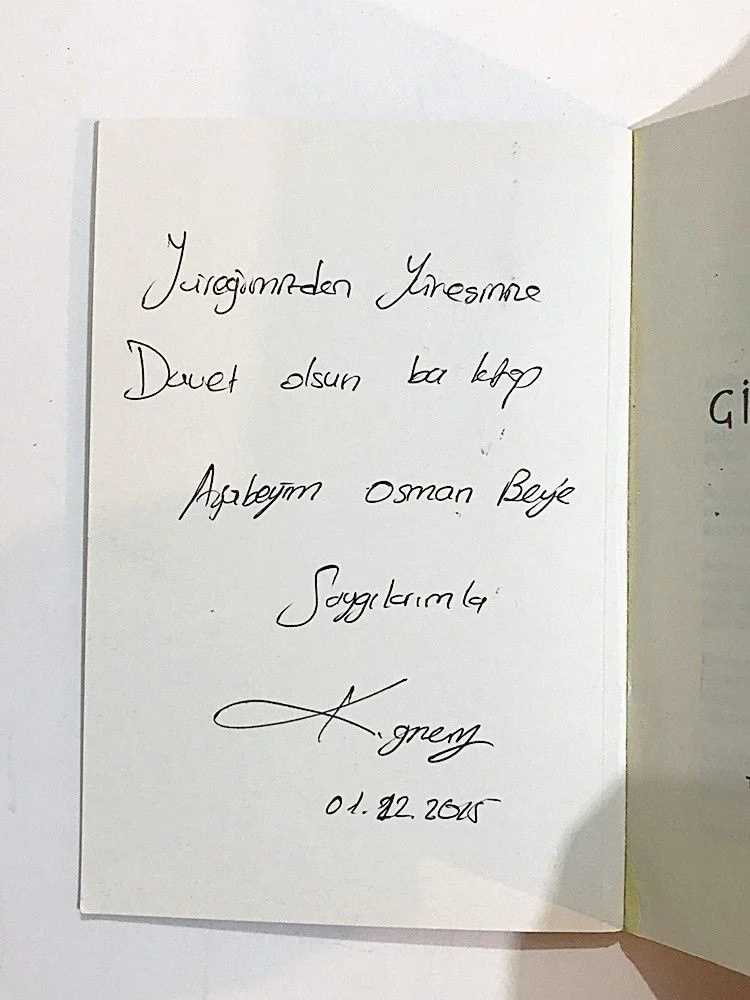 Yüreğimizden Yüreğinize
Davet olsun bu kitap
Ağabeyim Osman Bey'e
Saygılarımla
K.
01.12.2015
Gİ